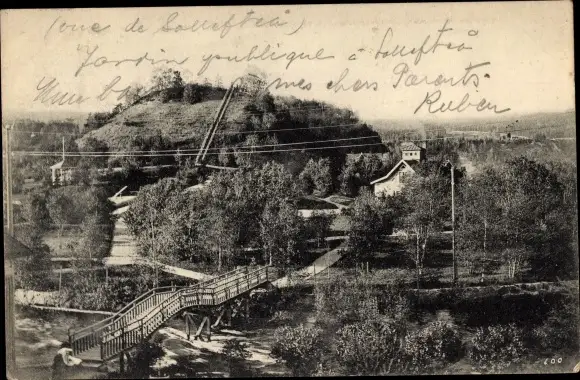 (vue de Sollefteå)
Jardin publique à Sollefteå
mes chers Parents.
Ruben
600